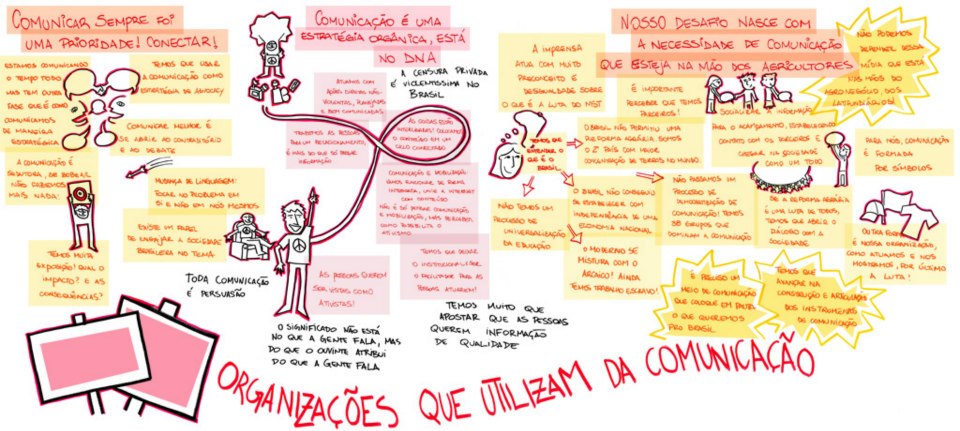 COMUNICAR SEMPRE FOI
UMA PRIORIDADE! CONECTAR!
ESTAMOS COMUNICANDO
O TEMPO TODO
MAS TEM OUTRA
FASE QUE É COMO
COMUNICAMOS
DE MANEIRA
ESTRATÉGICA
TEMOS QUE USAR
A COMUNICAÇÃO COMO
ESTRATÉGIA DE ADVOCACY
COMUNICAR MELHOR É
SE ABRIR AO CONTRADITÓRIO
E AO DEBATE
A COMUNICAÇÃO É
MAIS NADA!
MUDANÇA DE LINGUAGEM:
TOCAR NO PROBLEMA EM
SI E NÃO NOS MEDIMOS
EXISTE UM PAPEL
DE ENGAJAR A SOCIEDADE
BRASILEIRA NO TEMA
TEMOS MUITA
EXPOSIÇÃO! QUAL O
IMPACTO? E AS
CONSEQUÊNCIAS?
TODA COMUNICAÇÃO
É PERSUASÃO
COMUNICAÇÃO É UMA
ESTRATÉGIA ORGÂNICA, ESTÁ
NO DNA
A CENSURA PRIVADA
É VIOLENTÍSSIMA NO
BRASIL
ATUAMOS COM
AÇÕES DIRETAS NÃO-
VIOLENTAS, PLANEJADAS
E BEM COMUNICADAS
AS COISAS ESTÃO
INTERLIGADAS! COLOCAMOS
O CONTEÚDO EM UM
CICLO CONECTADO
TRAZEMOS AS PESSOAS
PARA UM RELACIONAMENTO,
É MAIS DO QUE SÓ PASSAR
INFORMAÇÃO
COMUNICAÇÃO E MOBILIZAÇÃO:
VAMOS FUNCIONAR DE FORMA
INTEGRADA, UNIR A INTERNET
COM CONTEÚDO
NÃO É SÓ SOBRE COMUNICAÇÃO
E MOBILIZAÇÃO, MAS PENSANDO
COMO POSSIBILITA O
ATIVISMO
AS PESSOAS QUEREM
SER VISTAS COMO
ATIVISTAS!
TEMOS QUE DEIXAR
O INSTITUCIONAL E SER
O FACILITADOR PARA AS
PESSOAS ATUAREM!
O SIGNIFICADO NÃO ESTÁ
NO QUE A GENTE FALA, MAS
DO QUE O OUVINTE ATRIBUI
DO QUE A GENTE FALA
TEMOS MUITO QUE
APOSTAR QUE AS PESSOAS
QUEREM INFORMAÇÃO
DE QUALIDADE
NOSSO DESAFIO NASCE COM
A NECESSIDADE DE COMUNICAÇÃO
QUE ESTEJA NA MÃO DOS AGRICULTORES
A IMPRENSA
ATUA COM MUITO
PRECONCEITO E
DESIGUALDADE SOBRE
O QUE É A LUTA DO MST
É IMPORTANTE
PERCEBER QUE TEMOS
PARCEIROS!
SOCIALIZAR A INFORMAÇÃO
NÃO PODEMOS
DEPENDER DESSA
MÍDIA QUE ESTÁ
NAS MÃOS DO
AGRONEGÓCIO, DOS
LATIFUNDIÁRIOS!
TEMOS DE
ENTENDER O
QUE É O
BRASIL
O BRASIL NÃO PERMITIU UMA
REFORMA AGRÁRIA. SOMOS
O 2º PAÍS COM MAIOR
CONCENTRAÇÃO DE TERRAS NO MUNDO
CONTATO COM OS PARCEIROS E
CHEGAR NA SOCIEDADE
COMO UM TODO
PARA NÓS, COMUNICAÇÃO
É FORMADA
POR SÍMBOLOS
NÃO TEMOS UM
PROCESSO DE
UNIVERSALIZAÇÃO
DA EDUCAÇÃO
O BRASIL NÃO CONSEGUIU
SE ESTABELECER COM
INDEPENDÊNCIA DE UMA
ECONOMIA NACIONAL
NÃO PASSAMOS UM
PROCESSO DE
DEMOCRATIZAÇÃO DE
COMUNICAÇÃO! TEMOS
DOMINAM A COMUNICAÇÃO
SE A REFORMA AGRÁRIA
É UMA LUTA DE TODOS,
TEMOS QUE ABRIR O
DIÁLOGO COM A
SOCIEDADE
O MODERNO SE
MISTURA COM O
ARCAICO! AINDA
TEMOS TRABALHO ESCRAVO!
OUTRA
É NOSSA ORGANIZAÇÃO,
COMO ATUAMOS E NOS
MOSTRAMOS, POR ÚLTIMO
A LUTA!
É PRECISO UM
MEIO DE COMUNICAÇÃO
QUE COLOQUE EM PAUTA
O QUE QUEREMOS
PRO BRASIL
TEMOS QUE
AVANÇAR NA
CONSTRUÇÃO E ARTICULAÇÃO
DOS INSTRUMENTOS
DE COMUNICAÇÃO
ORGANIZAÇÕES QUE UTILIZAM DA COMUNICAÇÃO